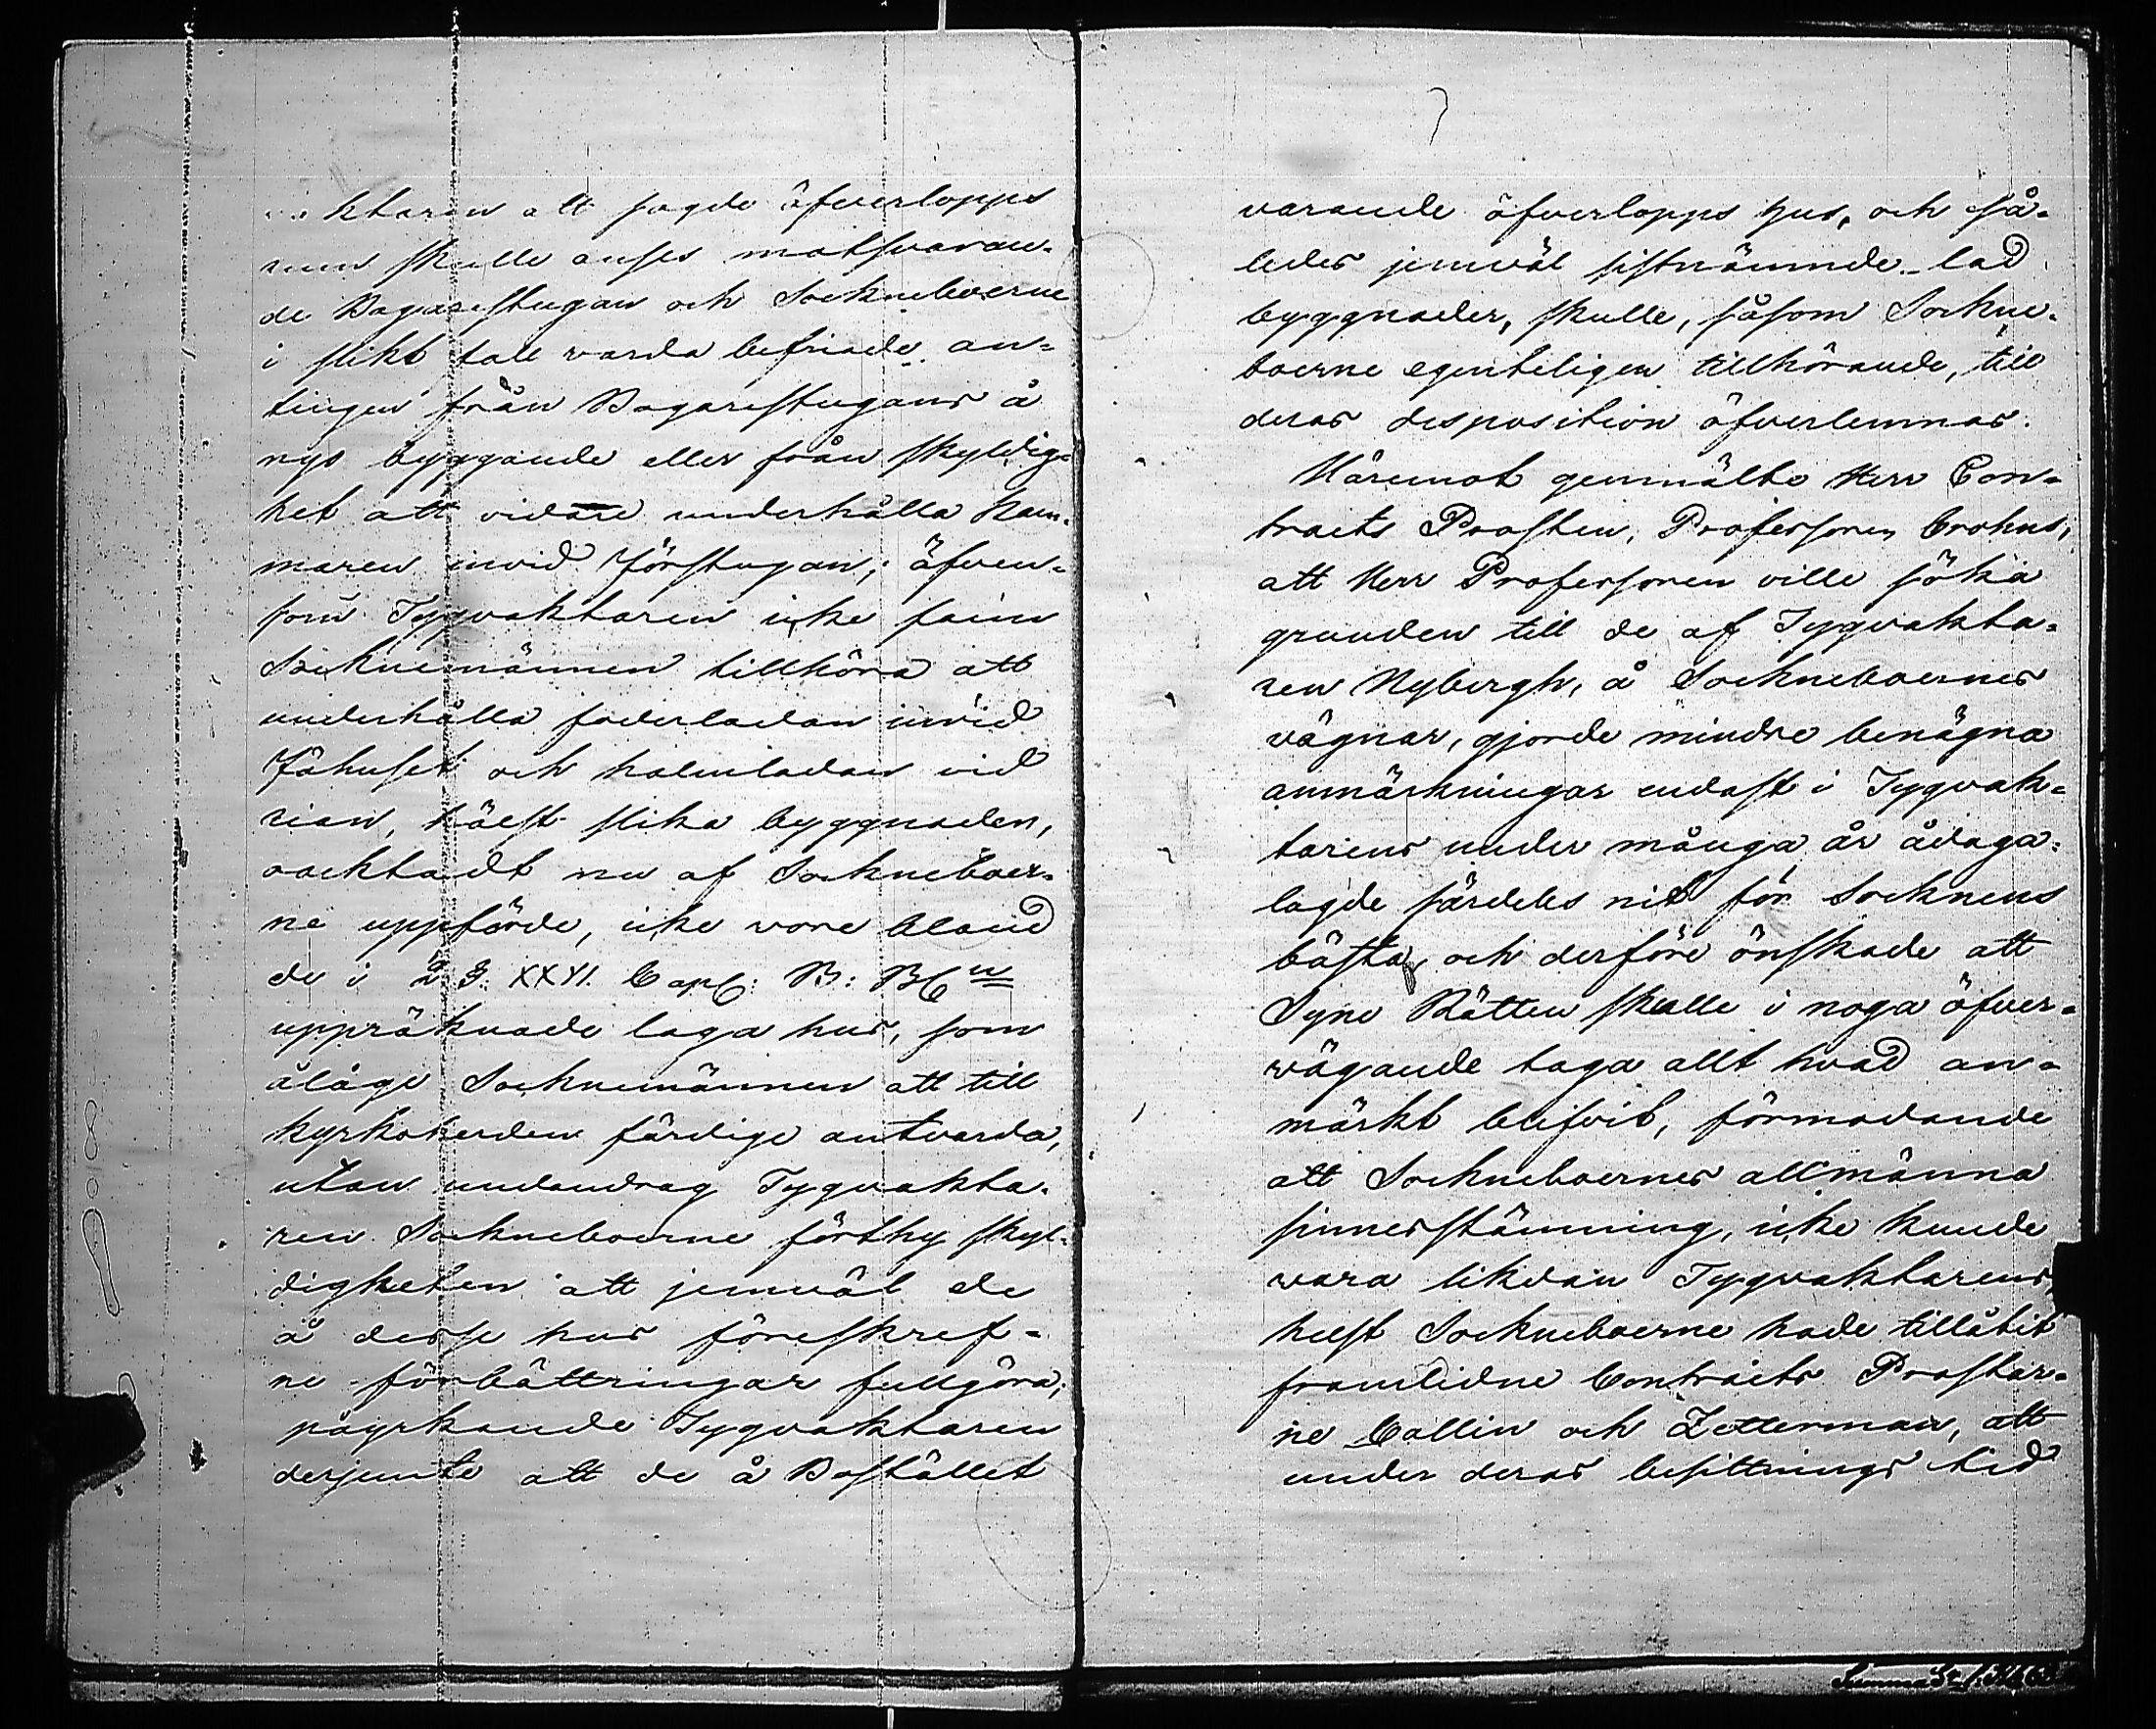 ktaren att sagde öfverlopps
rum skulle anses motsvaran-
de Bagarestugan och Sockneboerne
i slikt fall varda befriade an-
tingen från Bagarestugans å
nyo byggande eller från skyldig-
het att vidare underhålla Kam-
maren invid Förstugan; äfven-
som Tygvaktaren icke fann
Socknemännen tillhöra att
underhålla foderladan invid
Fähuset och halmladan vid
rian, hälst slika byggnader,
oacktadt nu af Sockneboer-
ne uppförde, icke vore bland
de i 2 §. XXVI. Cap: B: B:n
uppräknade laga hus, som
ålåge Socknemännen att till
kyrkoherden färdige antvarda,
utan undandrog Tygvakta-
ren Sockneboerne förthy skyl-
digheten att jemväl de
å desse hus föreskref-
ne förbättringar fullgöra;
påyrkande Tygvaktaren
derjemte att de å Bostället
7
varande öfverlopps hus, och så-
ledes jemväl sistnämnde lad
byggnader, skulle, såsom Sockne-
boerne egenteligen tillhörande, till
deras disposition öfverlemnas.
Häremot genmälte Herr Con-
tracts Prosten, Professoren Crohns,
att Herr Professoren ville söka
grunden till de af Tygvakta-
ren Nybergh, å Sockneboernes
vägnar, gjorde mindre benägna
anmärkningar endast i Tygvak-
tarens under många år ådaga-
lagde särdeles nit för Socknens
bästa, och derföre önskade att
Syne Rätten skulle i noga öfver-
vägande taga allt hvad an-
märkt blifvit, förmodande
att Sockneboernes allmänna
sinnesstämning, icke kunde
vara likdan Tygvaktarens,
helst Sockneboerne hade tillåtit
framlidne Contracts Prostar-
ne Collin och Zetterman, att
under deras besittnings tid